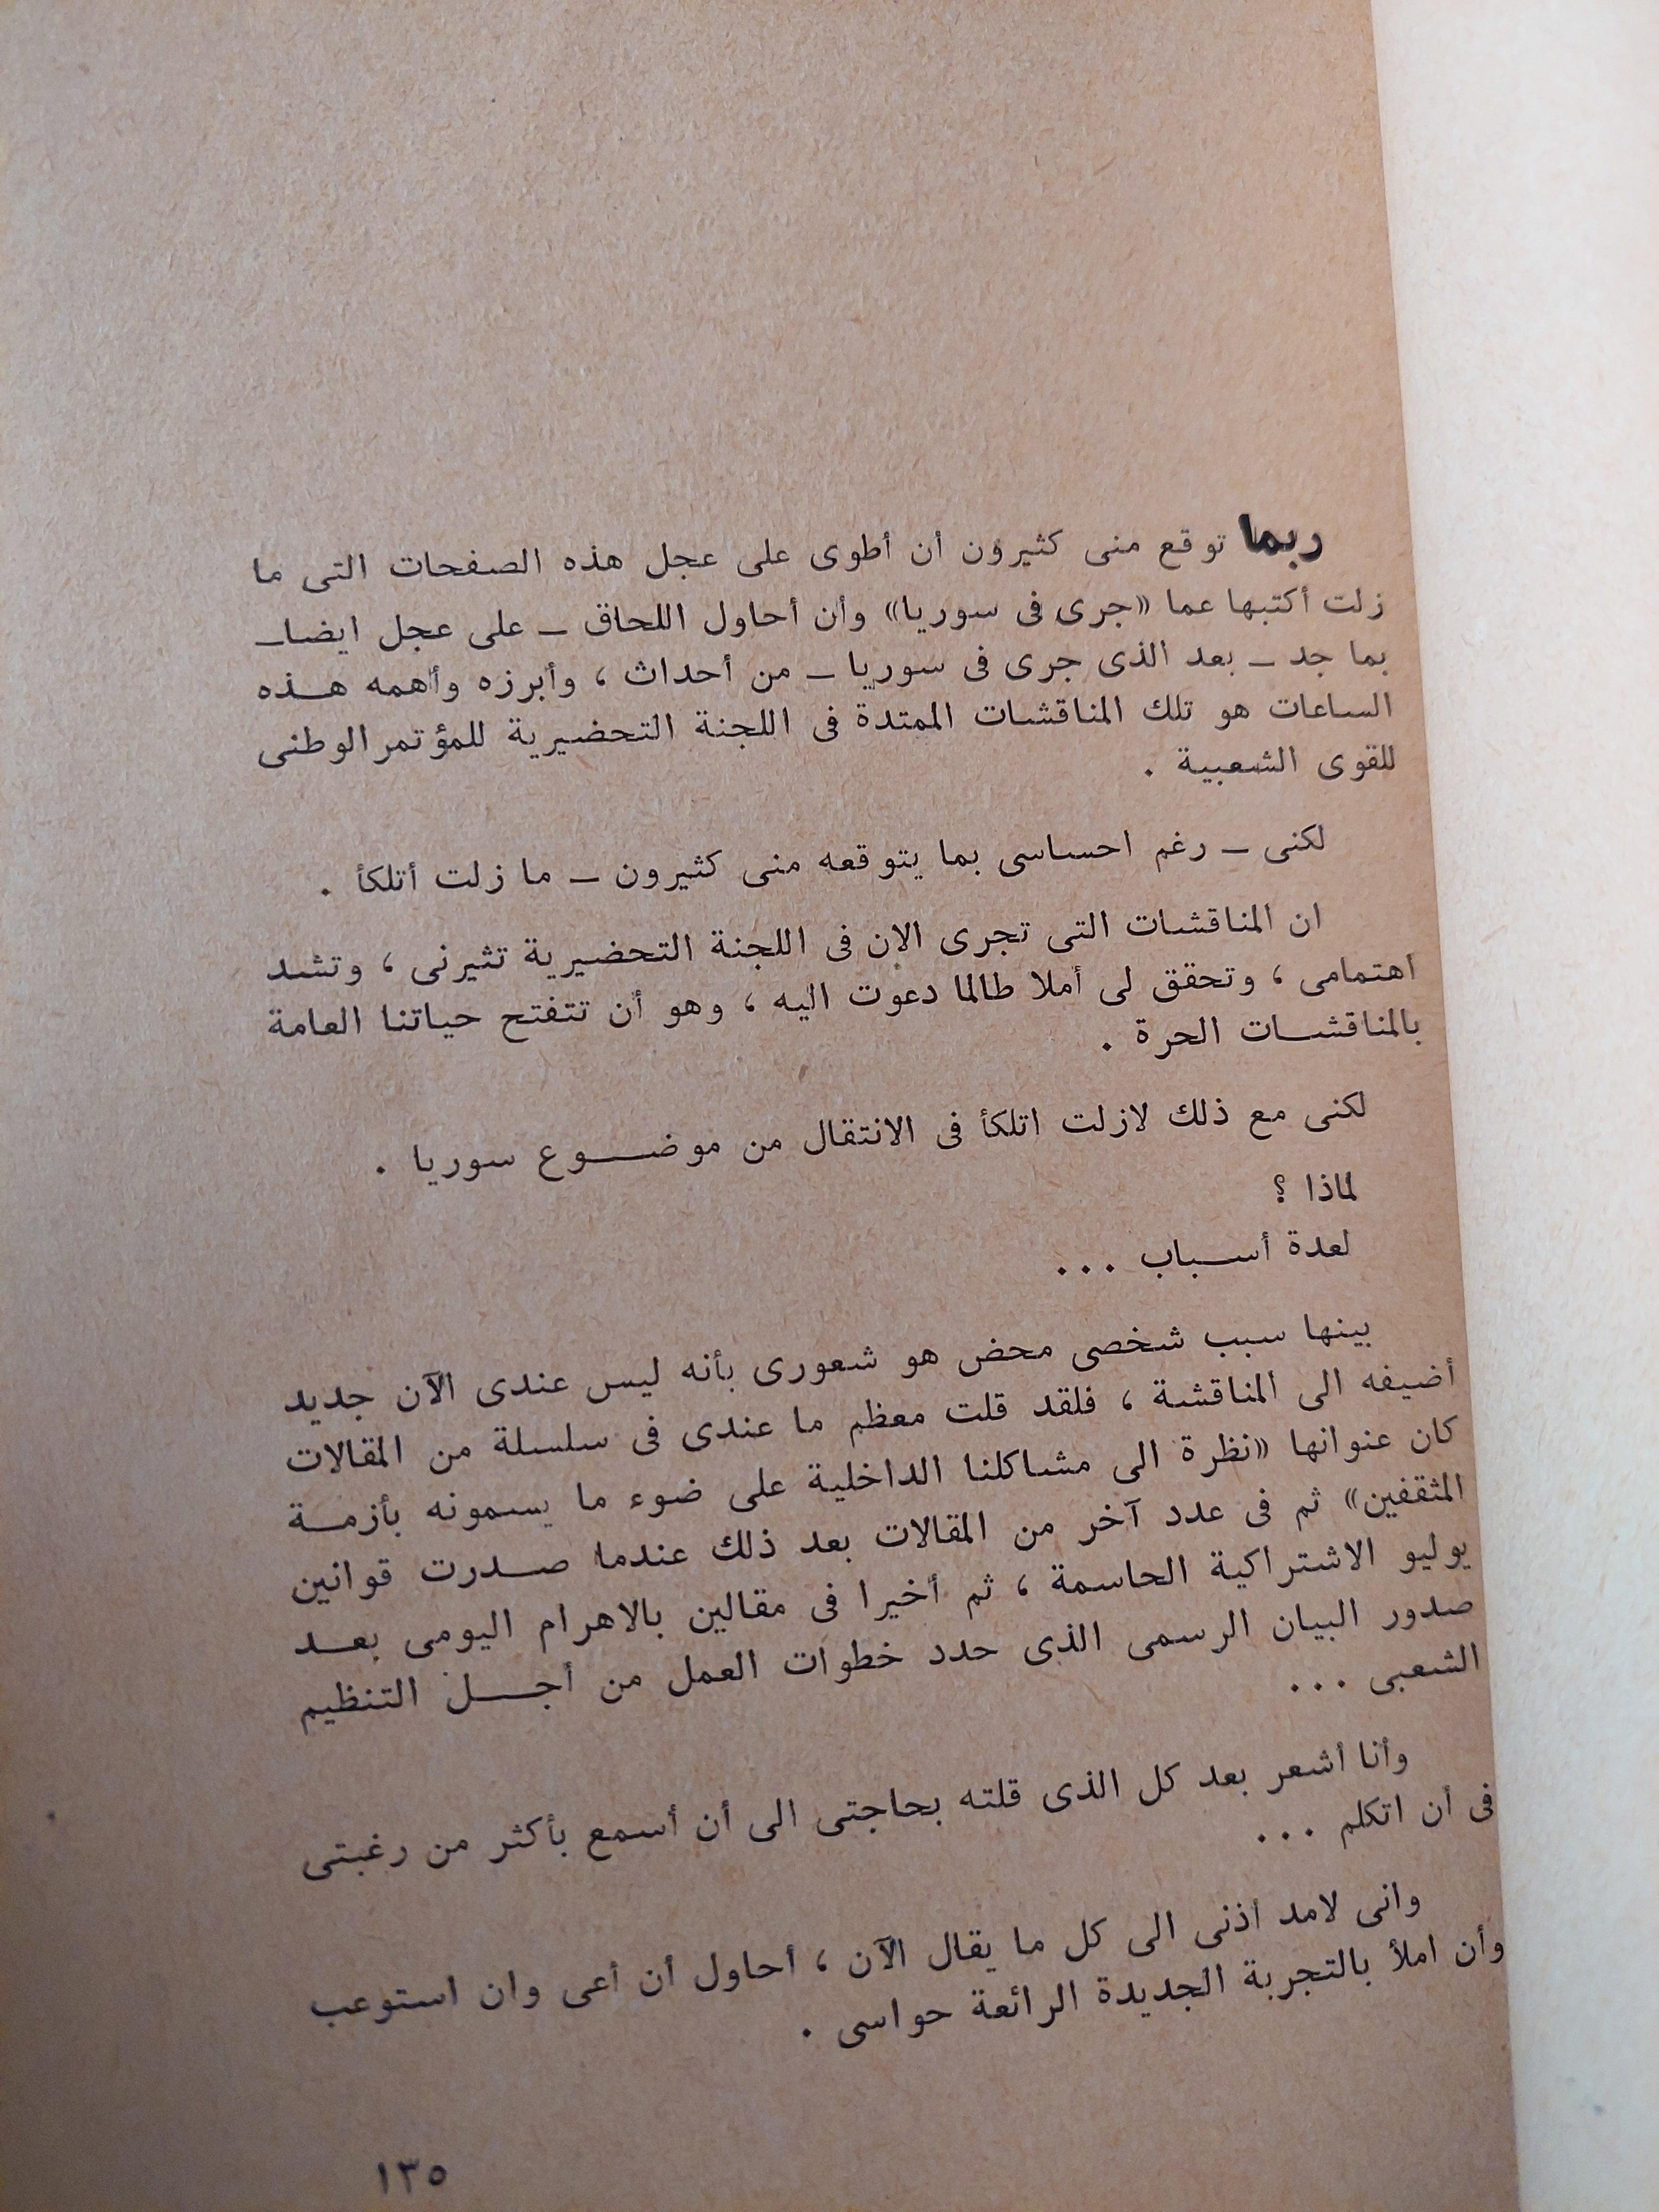 ربما توقع منى كثيرون أن أطوى على عجل هذه الصفحات التى ما
زلت أكتبها عما «جرى فى سوريا» وأن أحاول اللحاق ــ على عجل ايضا ــ
بما جد ــ بعد الذى جرى فى سوريا ــ من أحداث ، وأبرزه وأهمه هــذه
الساعات هو تلك المناقشات الممتدة فى اللجنة التحضيرية للمؤتمر الوطنى
للقوى الشعبية .
لكنى ــ رغم احساسى بما يتوقعه منى كثيرون ــ ما زلت أتلكأ .
ان المناقشات التى تجرى الان فى اللجنة التحضيرية تثيرنى ، وتشد
اهتمامى ، وتحقق لى أملا طالما دعوت اليه ، وهو أن تتفتح حياتنا العامة
بالمناقشــات الحرة .
لكنى مع ذلك لازلت اتلكأ فى الانتقال من موضــــوع سوريا .
لماذا ؟
لعدة أســباب ...
بينها سبب شخصى محض هو شعورى بأنه ليس عندى الآن جديد
أضيفه الى المناقشة ، فلقد قلت معظم ما عندى فى سلسلة من المقالات
كان عنوانها «نظرة الى مشاكلنا الداخلية على ضوء ما يسمونه بأزمــة
المثقفين» ثم فى عدد آخر من المقالات بعد ذلك عندما صــدرت قوانين
يوليو الاشتراكية الحاسمة ، ثم أخيرا فى مقالين بالاهرام اليومى بعــد
صدور البيان الرسمى الذى حدد خطوات العمل من أجــــل التنظيم
الشعبى ...
وأنا أشعر بعد كل الذى قلته بحاجتى الى أن أسمع بأكثر من رغبتى
فى أن اتكلم ...
وانى لامد أذنى الى كل ما يقال الآن ، أحاول أن أعى وان استوعب
وأن املأ بالتجربة الجديدة الرائعة حواسى .
١٣٥